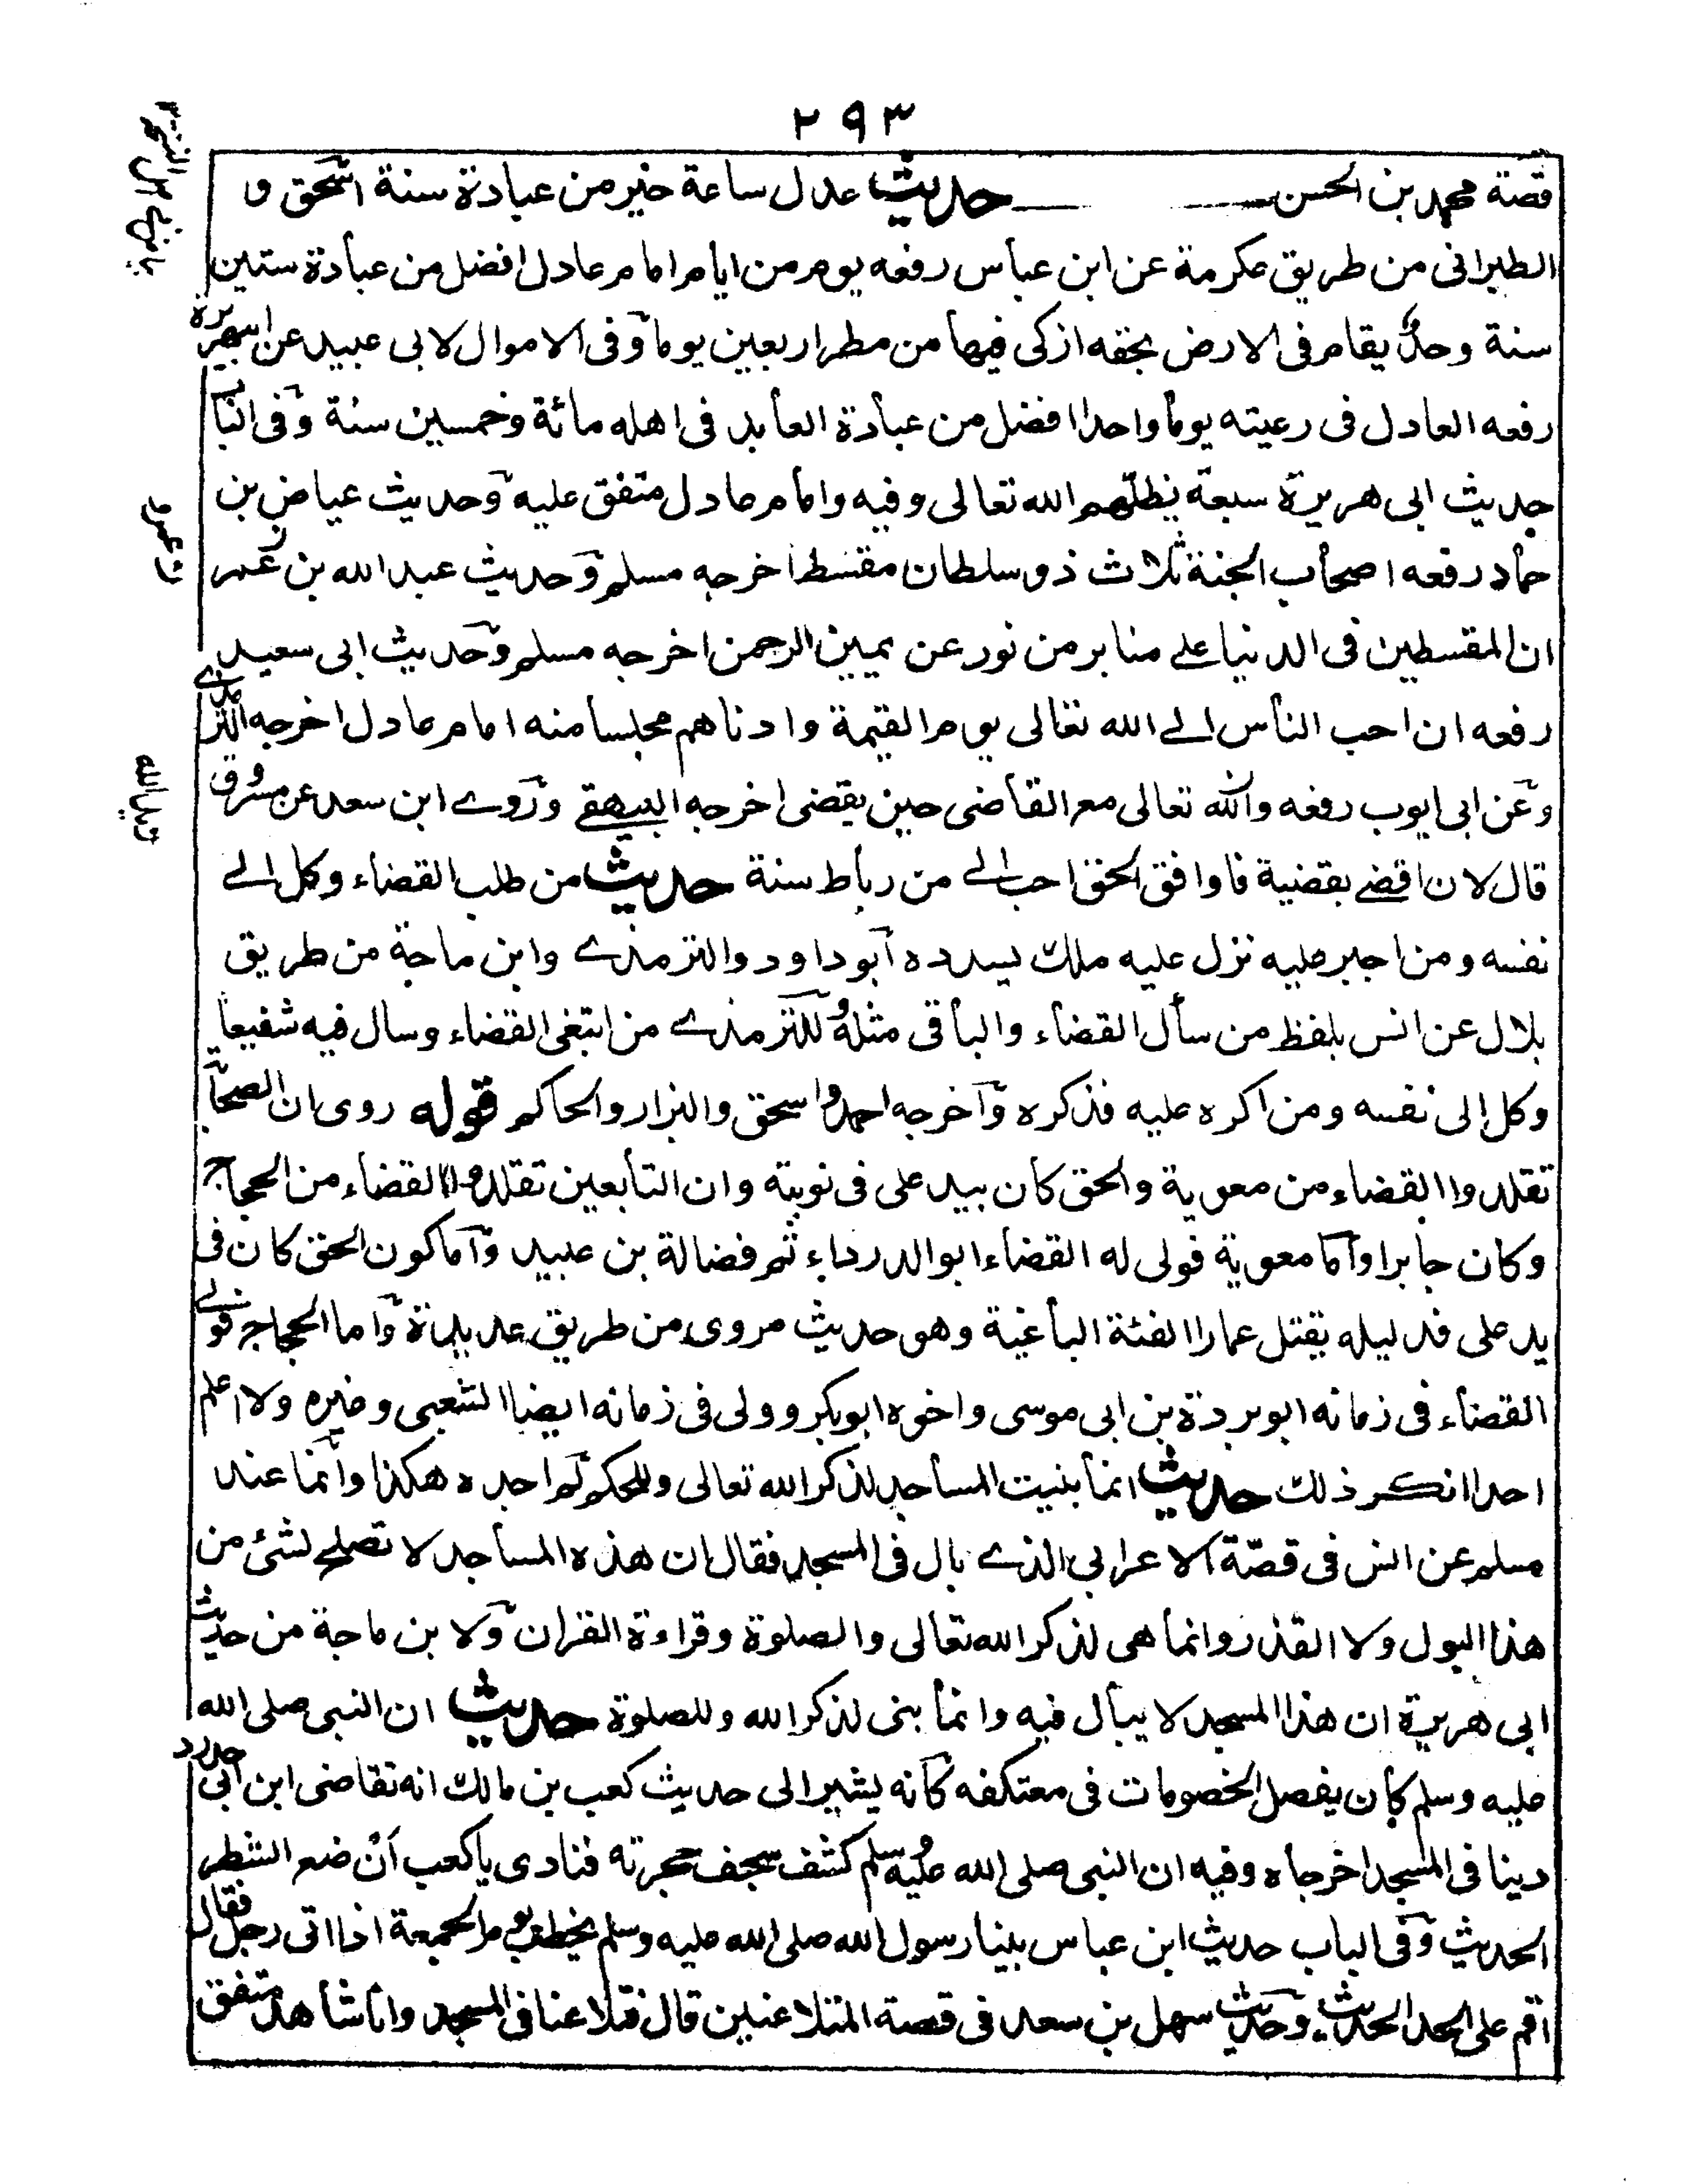 ٢٩٣
قصة محمد بن الحسن ــــ حديث عدل ساعة خير من عبادة سنة اسٰحق و
الطبرانى من طريق عكرمة عن ابن عباس رفعه يوم من ايام امام عادل افضل من عبادة ستين
سنة وحد يقام فى الارض بحقه ازكى فيها من مطر اربعين يوما وفى الاموال لابى عبيد عن ابى هريرة
رفعه العادل فى رعيته يوما واحدا افضل من عبادة العابد فى اهله مائة وخمسين سنة وفى الباب
حديث ابى هريرة سبعة يظلهم الله تعالى وفيه وامام عادل متفق عليه وحديث عياض بن
حماد رفعه اصحاب الجنة ثلاث ذو سلطان مقسط اخرجه مسلم وحديث عبد الله بن عمر
ان المقسطين فى الدنيا علے منابر من نور عن يمين الرحمن اخرجه مسلم وحديث ابى سعيد
رفعه ان احب الناس الے الله تعالى يوم القيمة وادناهم مجلسا منه امام عادل اخرجه الترمذے
وعن ابى ايوب رفعه والله تعالى مع القاضى حين يقضى اخرجه البيهقے وروے ابن سعد عن مسروق
قال لان اقضے بقضية فاوافق الحق احب الے من رباط سنة حديث من طلب القضاء وكل الے
نفسه ومن اجبر عليه نزل عليه ملك يسدده ابو داود والترمذے وابن ماجة من طريق
بلال عن انس بلفظ من سأل القضاء والباقى مثله وللترمذے من ابتغى القضاء وسال فيه شفيعا
وكل الى نفسه ومن اكره عليه فذكره واخرجه احمد واسحق والبزار والحاكم قوله روى ان الصحابة
تقلدوا القضاء من معوية والحق كان بيد على فى نوبته وان التابعين تقلدوا القضاء من الحجاج
وكان جابرا واما معوية فولى له القضاء ابو الدرداء ثم فضالة بن عبيد واما كون الحق كان فى
يد على فدليله يقتل عمارا الفئة الباغية وهو حديث مروى من طريق عديدة واما الحجاج فولے
القضاء فى زمانه ابو بردة بن ابى موسى واخوه ابو بكر وولى فى زمانه ايضا الشعبى وغيره ولا اعلم
احدا انكر ذلك حديث انما بنيت المساجد لذكر الله تعالى وللحكم لم اجده هكذا وانما عند
مسلم عن انس فى قصة الاعرابى الذے بال فى المسجد فقال ان هذه المساجد لا تصلح لشئ من
هذا البول ولا القذر وانما هى لذكر الله تعالى والصلوة وقراءة القران ولابن ماجة من حديث
ابى هريرة ان هذا المسجد لا يبال فيه وانما بنى لذكر الله وللصلوة حديث ان النبى صلى الله
عليه وسلم كان يفصل الخصومات فى معتكفه كانه يشير الى حديث كعب بن مالك انه تقاضى ابن ابى حدرد
دينا فى المسجد اخرجاه وفيه ان النبى صلى الله عليه وسلم كشف سجف حجرته فنادى يا كعب ان ضع الشطر
الحديث وفى الباب حديث ابن عباس بينا رسول الله صلى الله عليه وسلم يخطب يوم الجمعة اذا اتى رجل فقال
اقم على الحد الحديث وحديث سهل بن سعد فى قصة المتلاعنين قال فتلاعنا فى المسجد وانا شاهد متفق